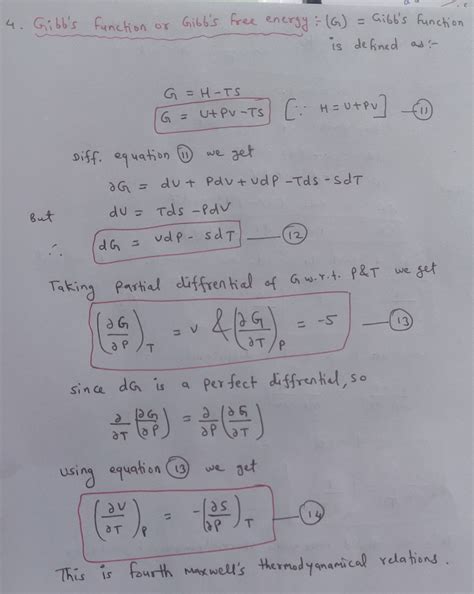 4. Gibb's function or Gibb's free energy :- (G) = Gibb's function
is defined as :-
G = H-TS
G = U+PV-TS [∵ H = U+PV] — (11)
Diff. equation (11) we get
∂G = dU + PdV + VdP - Tds - SdT
But dU = Tds - PdV
∴ dG = VdP - SdT — (12)
Taking partial diffrential of G w.r.t. P&T we get
(∂G/∂P)_T = V & (∂G/∂T)_P = -S — (13)
since dG is a perfect diffrential, so
∂/∂T (∂G/∂P) = ∂/∂P (∂G/∂T)
using equation (13) we get
(∂V/∂T)_P = -(∂S/∂P)_T — (14)
This is fourth maxwell's thermodyanamical relations.